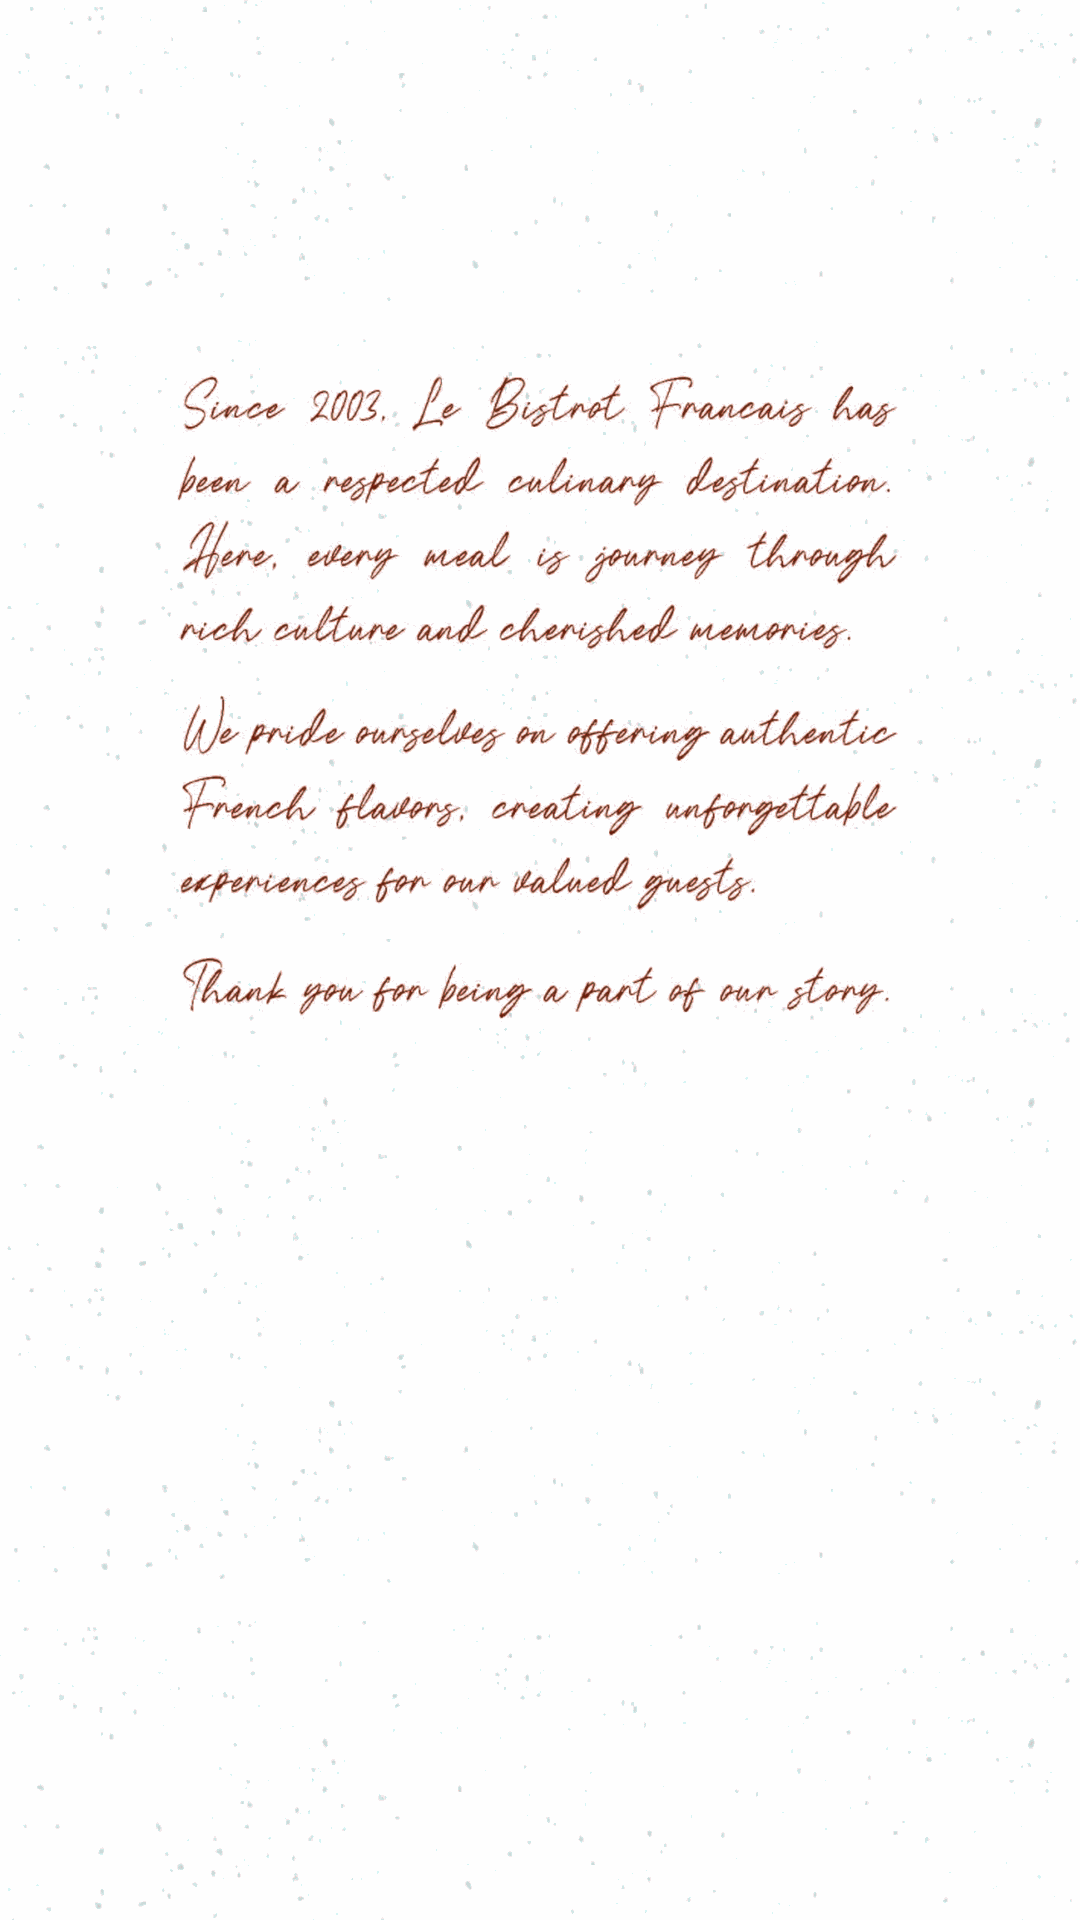 Since 2003, Le Bistrot Francais has
been a respected culinary destination.
Here, every meal is journey through
rich culture and cherished memories.
We pride ourselves on offering authentic
French flavors, creating unforgettable
experiences for our valued guests.
Thank you for being a part of our story.